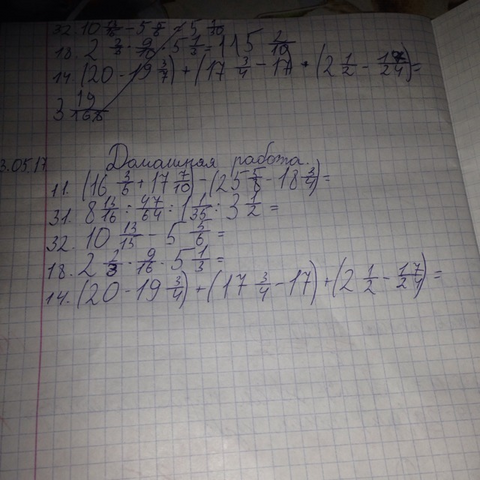 18. 2 2/3 · 9/16 · 5 1/3 = 115 2/10
14. (20 - 19 3/4) + (17 3/4 - 17) + (2 1/2 - 17/24) =
3.05.17 Домашняя работа.
11. (16 3/5 + 17 7/10) - (25 5/8 - 18 3/4) =
31. 8 13/16 : 47/64 : 1 1/35 : 3 1/2 =
32. 10 13/15 - 5 5/6 =
18. 2 2/3 · 9/16 · 5 1/3 =
14. (20 - 19 3/4) + (17 3/4 - 17) + (2 1/2 - 17/24) =